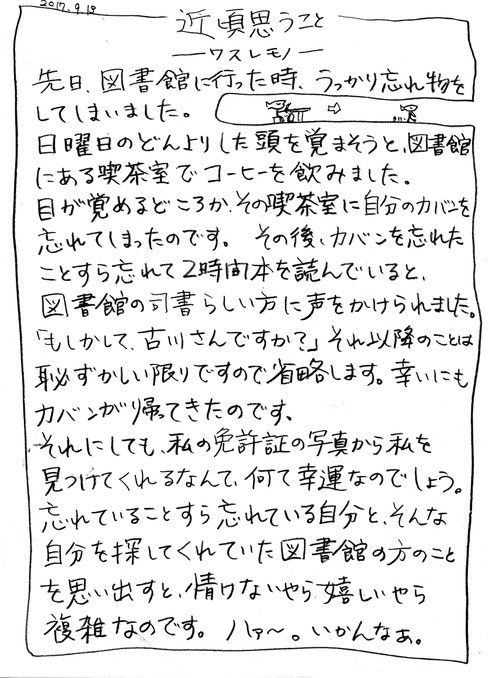 2017.9.19
近頃思うこと
―ワスレモノ―
先日、図書館に行った時、うっかり忘れ物を
してしまいました。
日曜日のどんよりした頭を覚まそうと、図書館
にある喫茶室でコーヒーを飲みました。
目が覚めるどころか、その喫茶室に自分のカバンを
忘れてしまったのです。 その後、カバンを忘れた
ことすら忘れて2時間本を読んでいると、
図書館の司書らしい方に声をかけられました。
「もしかして、古川さんですか?」それ以降のことは
恥ずかしい限りですので省略します。幸いにも
カバンが帰ってきたのです、
それにしても、私の免許証の写真から私を
見つけてくれるなんて、何て幸運なのでしょう。
忘れていることすら忘れている自分と、そんな
自分を探してくれていた図書館の方のこと
を思い出すと、情けないやら嬉しいやら
複雑なのです。 ハァ〜。いかんなぁ。